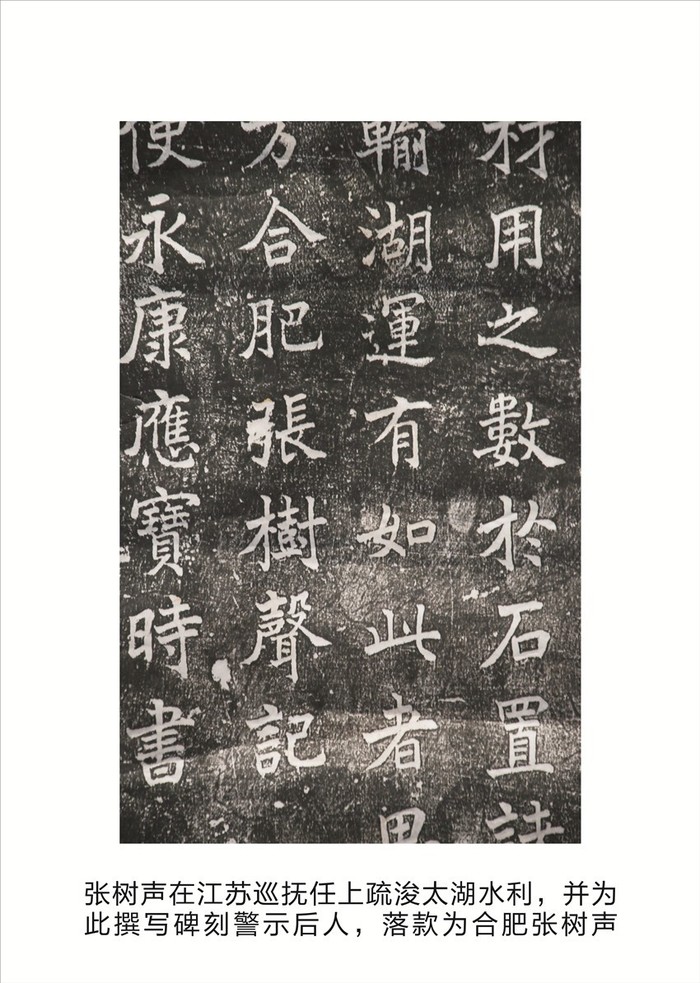 材用之數於石置
輸湖運有如此者
方合肥張樹聲記
使永康應寶時書
张树声在江苏巡抚任上疏浚太湖水利，并为
此撰写碑刻警示后人，落款为合肥张树声